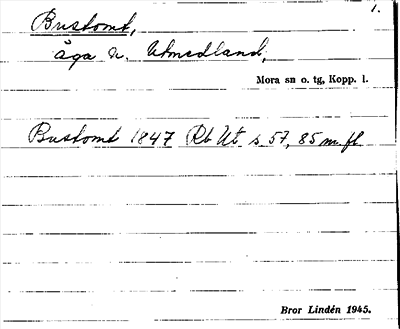 1.
Bustomt,
åga n. Utmedland,
Mora sn o. tg, Kopp. l.
Bustomt 1847 Rb Ut s 57, 85 m. fl.
Bror Lindén 1945.